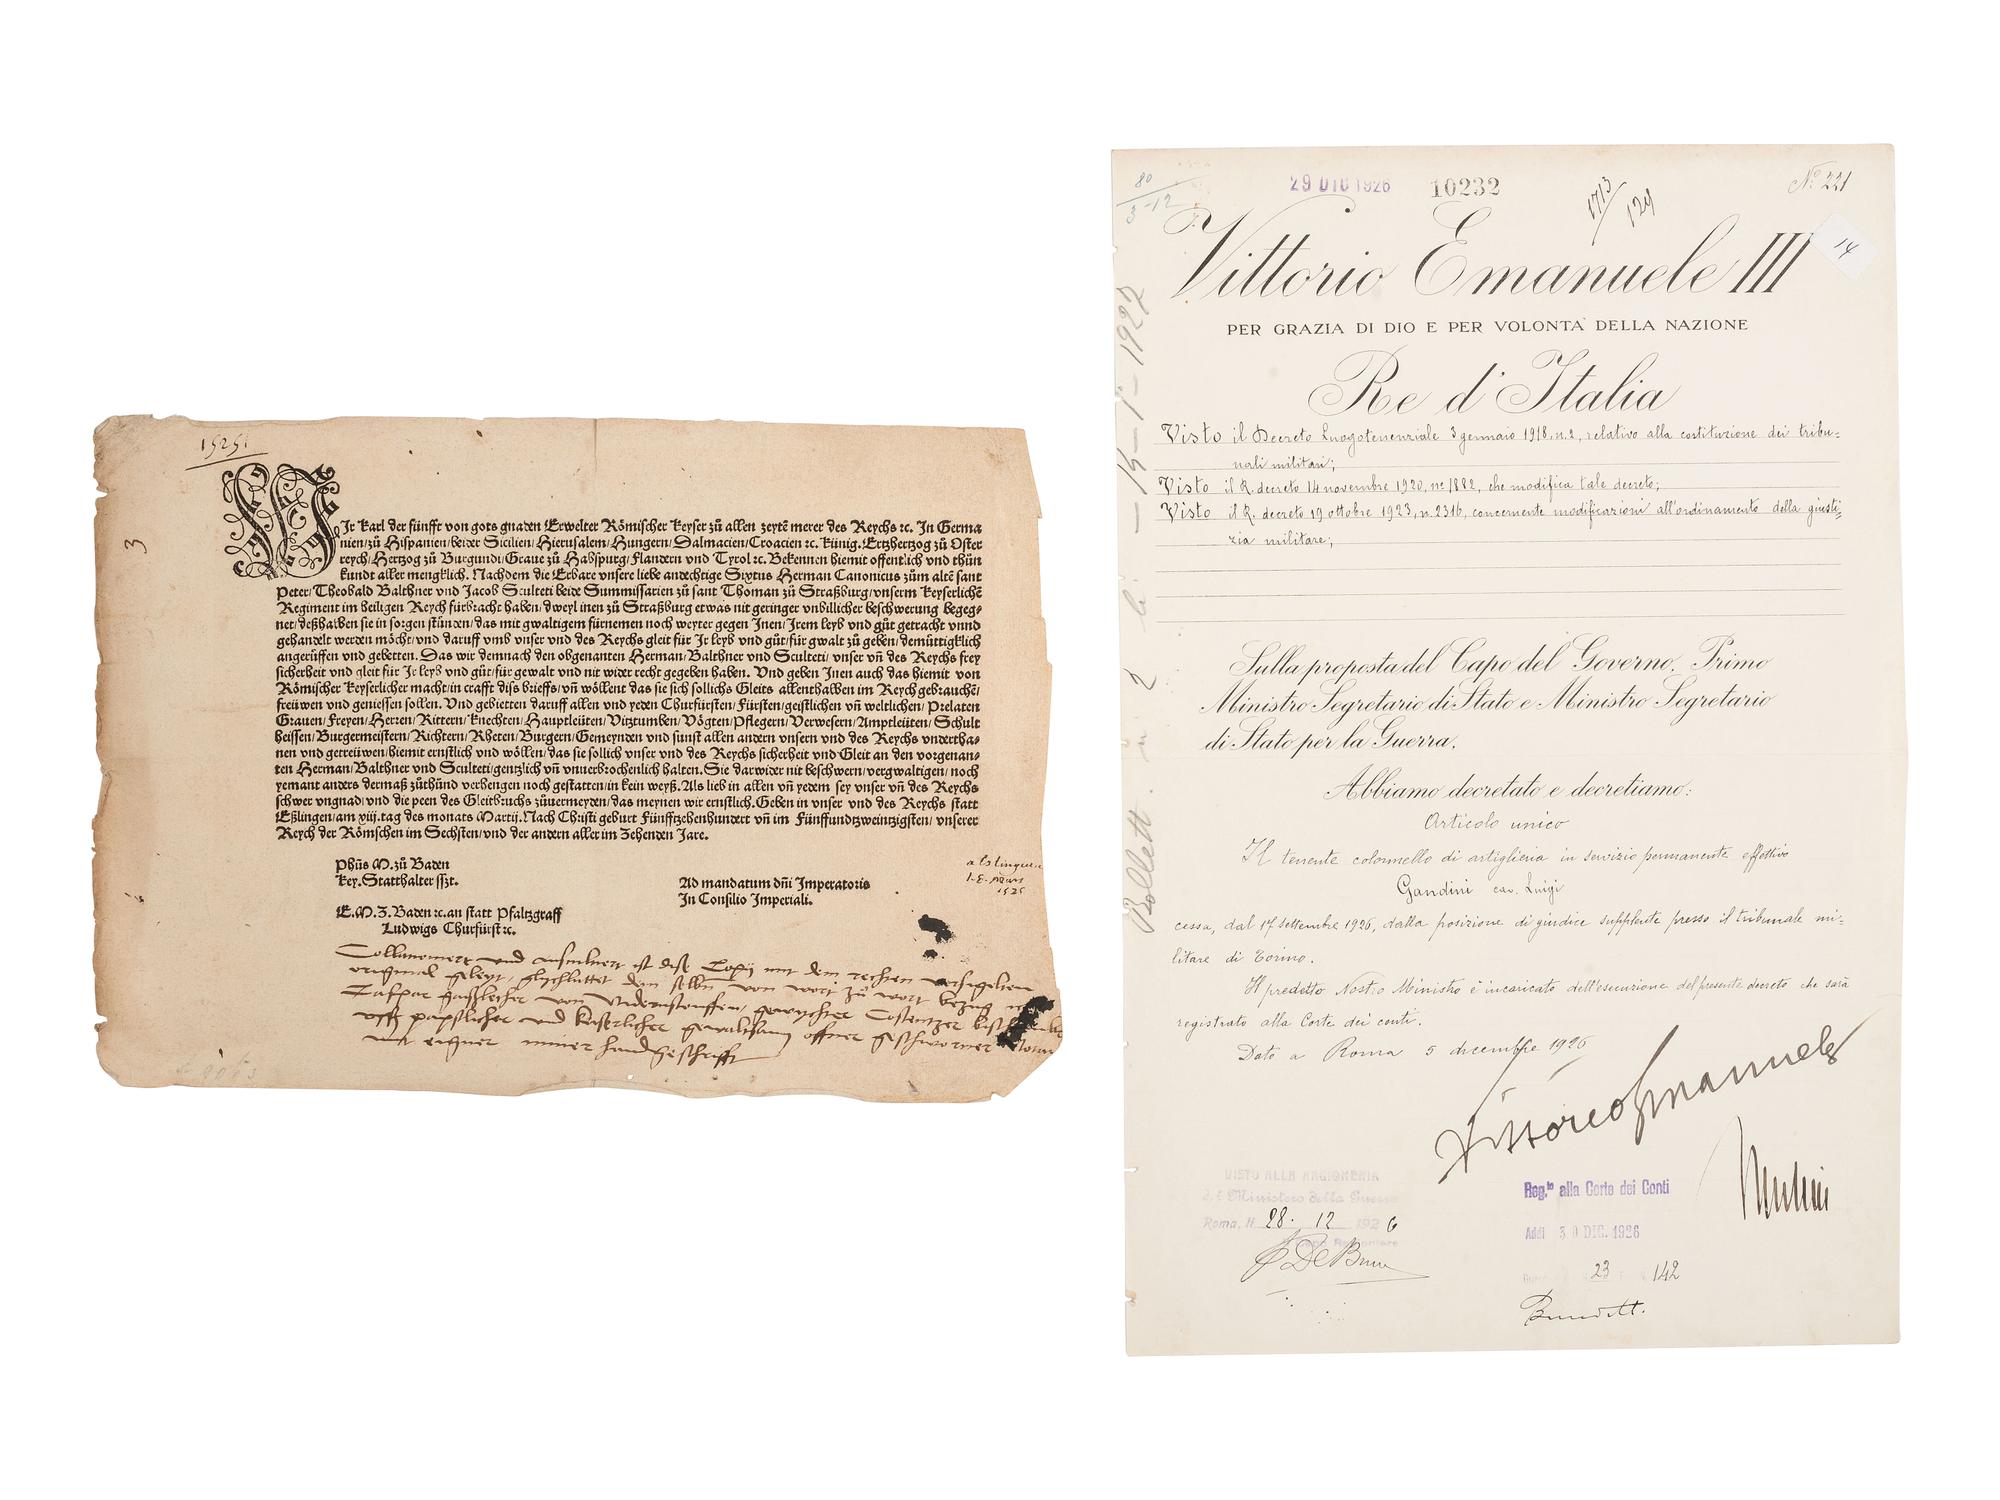 1525.
3
WIr Karl der fünfft von gots gnaden Erwelter Römischer Keyser zů allen zeytẽ merer des Reychs ꝛc. In Germa
nien/zů Hispanien/beider Sicilien/Hierusalem/Hungern/Dalmacien/Croacien ꝛc. Künig. Ertzhertzog zů Oster
reych/Hertzog zů Burgundi/Graue zů Habspurg/Flandern vnd Tyrol ꝛc. Bekennen hiemit offentlich vnd thůn
kundt aller mengklich. Nachdem die Erbare vnsere liebe andechtige Sixtus Herman Canonicus zům altẽ sant
Peter/Theobald Balthner vnd Jacob Sculteti beide Summissarien zů sant Thoman zů Straßburg/vnserm Keyserlichẽ
Regiment im heiligen Reych fürbracht haben/dweyl inen zů Straßburg etwas nit geringer vnbillicher beschwerung begeg-
net/deßhalben sie in sorgen stünden/das mit gwaltigem fürnemen noch weyter gegen Inen/Irem leyb vnd gůt getracht vnnd
gehandelt werden möcht/vnd daruff vmb vnser vnd des Reychs gleit für Ir leyb vnd gůt/für gwalt zů geben/demüttigklich
angerüffen vnd gebetten. Das wir demnach den obgenanten Herman/Balthner vnd Sculteti/vnser vñ des Reychs frey
sicherheit vnd gleit für Ir leyb vnd gůt/für gewalt vnd nit wider recht gegeben haben. Vnd geben Inen auch das hiemit von
Römischer Keyserlicher macht/in crafft diß brieffs/vñ wöllent das sie sich sollichs Gleits allenthalben im Reych gebrauchẽ/
freüwen vnd geniessen sollen. Vnd gebietten daruff allen vnd yeden Churfürsten/Fürsten/geistlichen vñ weltlichen/Prelaten
Grauen/Freyen/Herren/Rittern/Knechten/Hauptleüten/Vitztumben/Vögten/Pflegern/Verwesern/Amptleüten/Schult
heissen/Burgermeistern/Richtern/Rheten/Burgern/Gemeynden vnd sunst allen andern vnsern vnd des Reychs vndertha-
nen vnd getreüwen/hiemit ernstlich vnd wöllen/das sie sollich vnser vnd des Reychs sicherheit vnd Gleit an den vorgenan-
ten Herman/Balthner vnd Sculteti/gentzlich vñ vnuerbrochenlich halten. Sie darwider nit beschwern/vergwaltigen/noch
yemant anders dermaß zůthůnd verhengen noch gestatten/in kein weyß. Als lieb in allen vñ yedem sey vnser vñ des Reychs
schwer vngnad/vnd die peen des Gleitbruchs zůuermeyden/das meynen wir ernstlich. Geben in vnser vnd des Reychs statt
Eßlingen/am xiij. tag des monats Martij. Nach Christi geburt Fünfftzehenhundert vñ im Fünffundtzweintzigsten/vnserer
Reych der Römschen im Sechsten/vnd der andern aller im Zehenden Jare.
Phũs M. zů Baden
Key. Statthalter sszt.
Ad mandatum dñi Imperatoris
In Consilio Imperiali.
E. M. Z. Baden ꝛc. an statt Pfaltzgraff
Ludwigs Churfürst ꝛc.
1525
Collationiert und ist dise Copij mit dem rechten versigelten
original von wort zů wort
päpstlicher und Keiserlicher offner geschworner
mit eigner miner handgeschrifft
80
3-12
29 DIC 1926
10232
1713/129
N° 221
14
Vittorio Emanuele III
PER GRAZIA DI DIO E PER VOLONTA' DELLA NAZIONE
Re d'Italia
Visto il Decreto Luogotenenziale 3 gennaio 1918, n. 2, relativo alla costituzione dei tribu-
nali militari;
Visto il R. decreto 14 novembre 1920, n° 1882, che modifica tale decreto;
Visto il R. decreto 19 ottobre 1923, n. 2316, concernente modificazioni all'ordinamento della giusti-
zia militare;
Sulla proposta del Capo del Governo, Primo
Ministro Segretario di Stato e Ministro Segretario
di Stato per la Guerra.
Abbiamo decretato e decretiamo:
Articolo unico
Il tenente colonnello di artiglieria in servizio permanente effettivo
Gandini cav. Luigi
cessa, dal 17 settembre 1926, dalla posizione di giudice supplente presso il tribunale mi-
litare di Torino.
Il predetto Nostro Ministro è incaricato dell'esecuzione del presente decreto che sarà
registrato alla Corte dei conti.
Dato a Roma 5 dicembre 1926
Vittorio Emanuele
VISTO ALLA RAGIONERIA
del Ministero della Guerra
Roma, li 28. 12 1926
Il Capo Ragioniere
Reg.to alla Corte dei Conti
Addì 30 DIC. 1926
23 142
Bollett. n° 2 li - 14-1°-1927